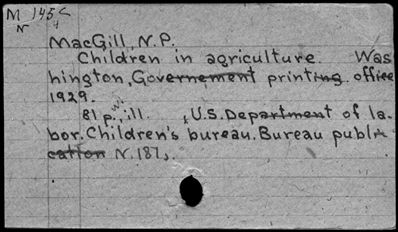 M 145
N 4
MacGill, N.P.
Children in agriculture. Was
hington, Governement printing office
1929.
81 p. ill. (U.S. Department of la-
bor. Children's bureau. Bureau publi
cation N. 187).